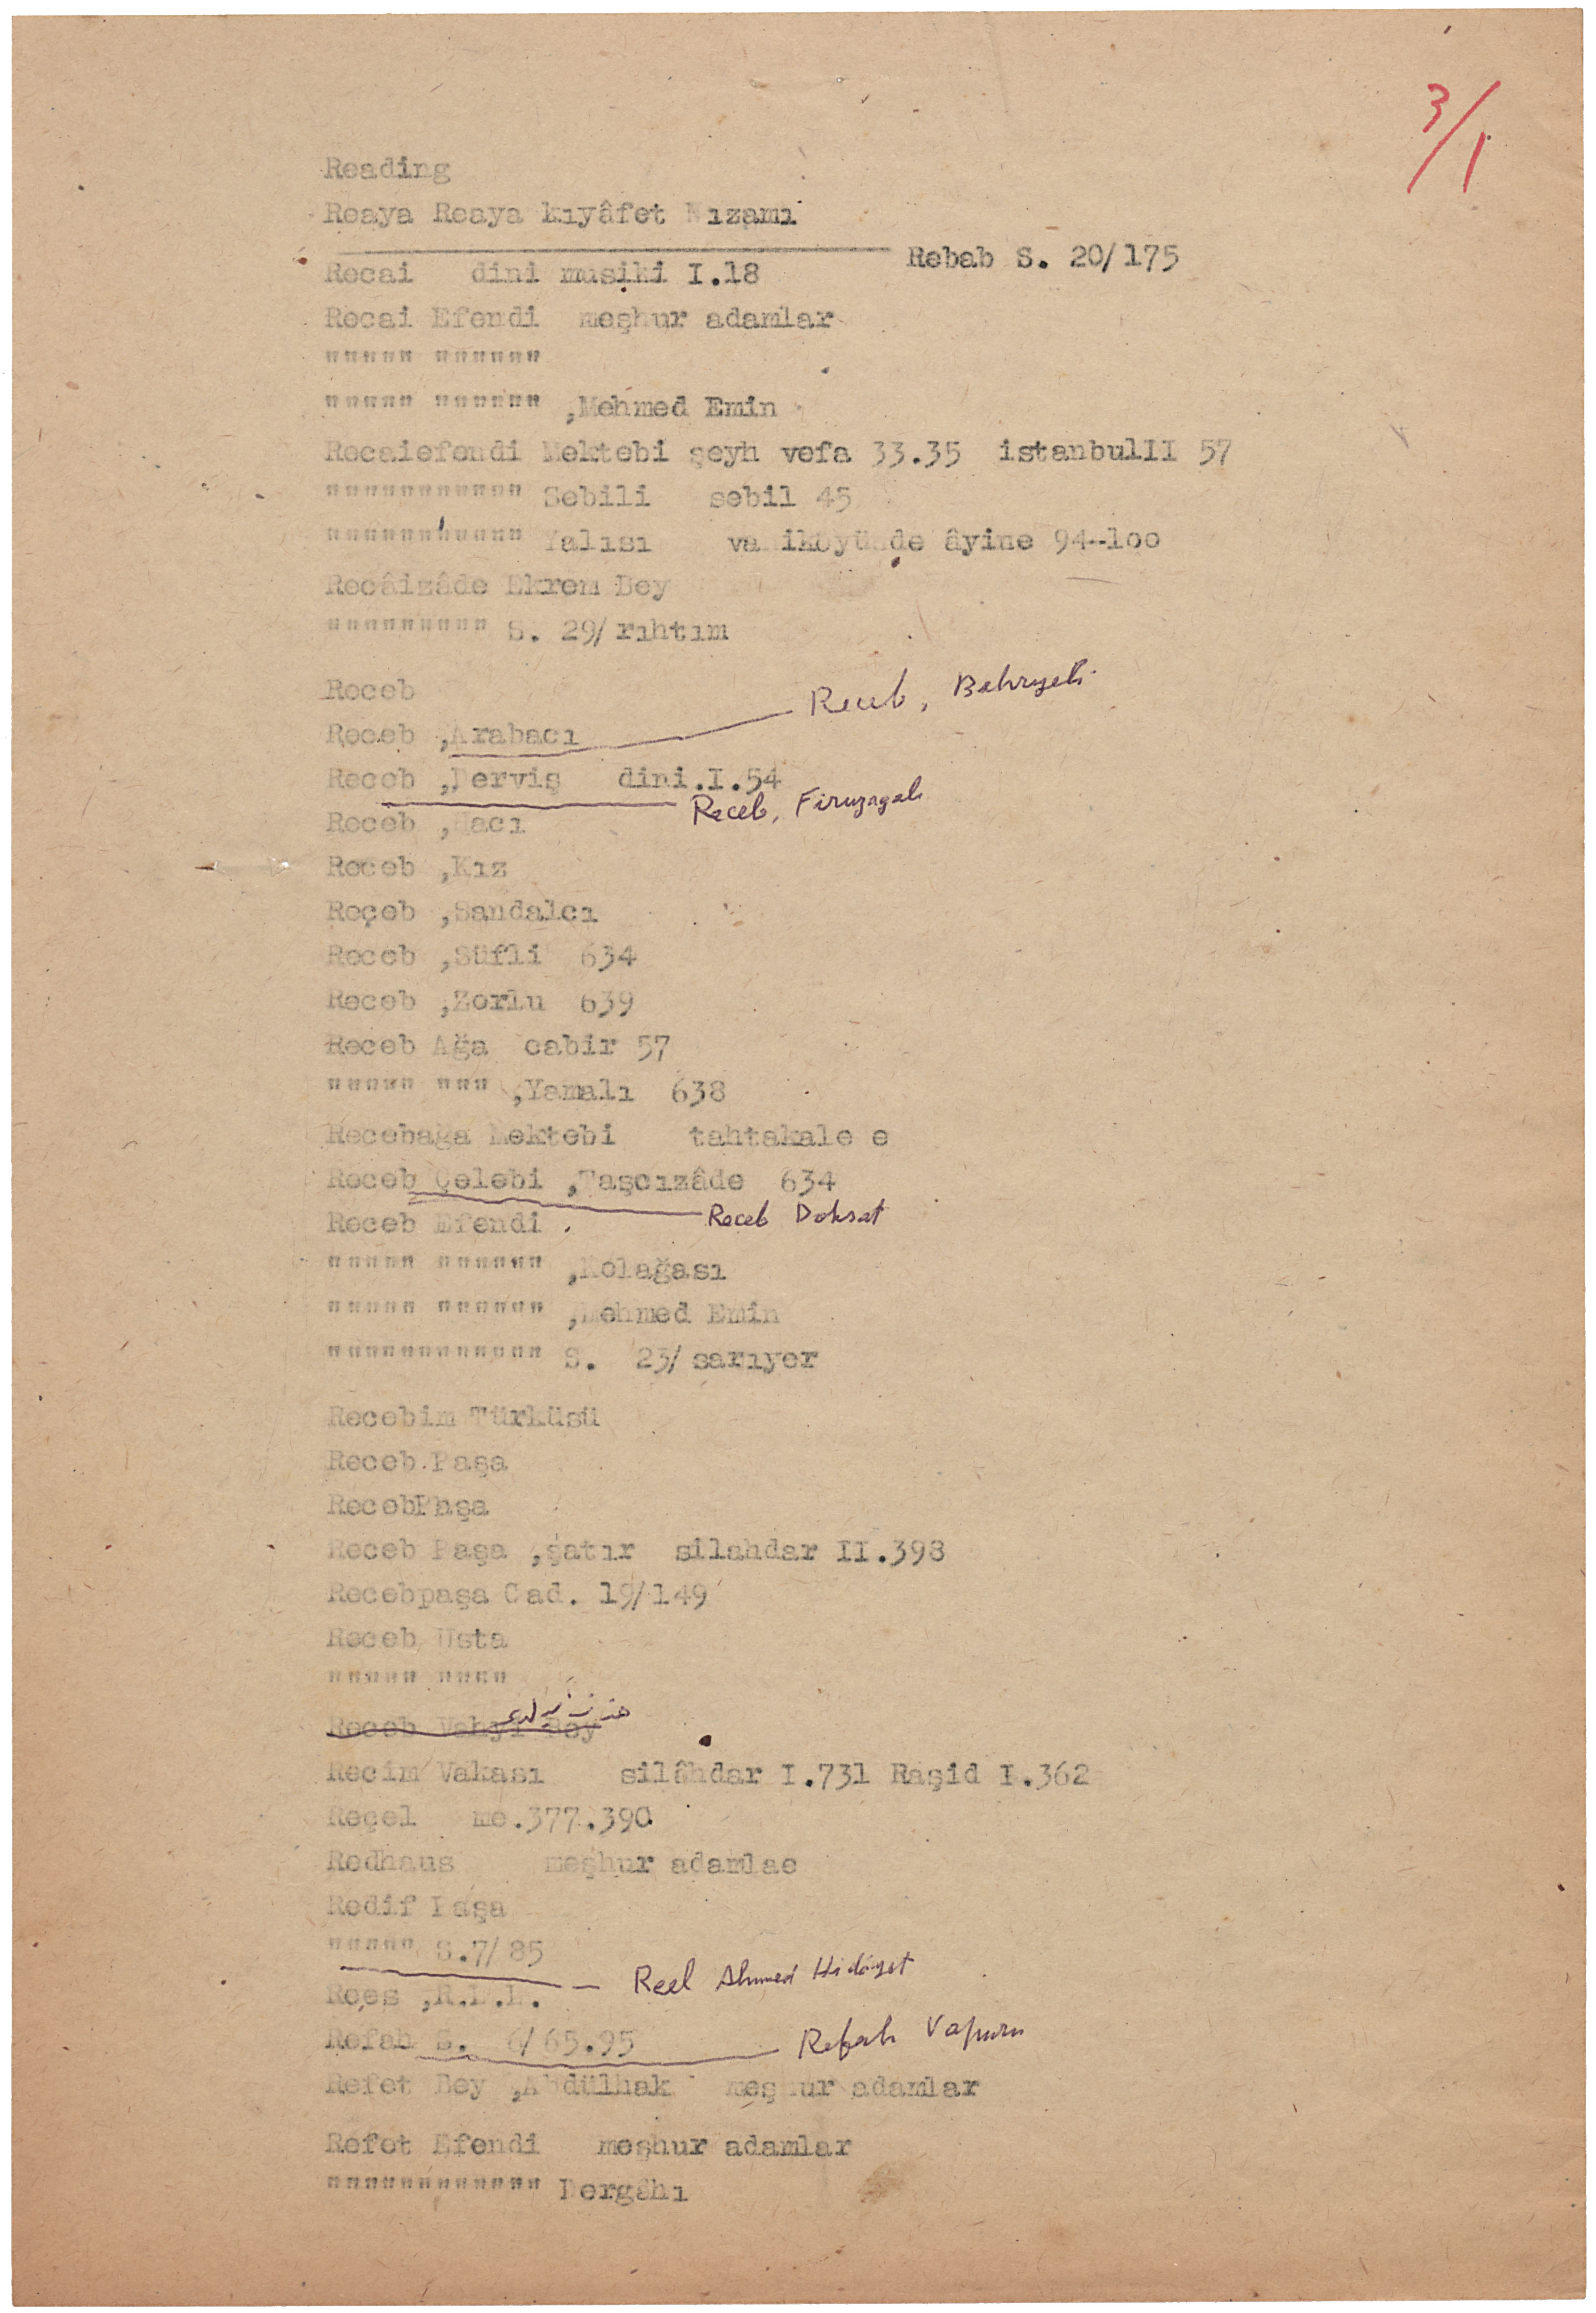 3/1
Reading
Reaya Reaya kıyâfet Nızamı
Rebab S. 20/175
Recai dini musiki I.18
Recai Efendi meşhur adamlar
""""" """"""
""""" """""" ,Mehmed Emin
Recaiefendi Mektebi şeyh vefa 33.35 istanbulII 57
""""""""""" Sebili sebil 45
""""""""""" Yalısı vaniköyünde âyine 94--loo
Recâizâde Ekrem Bey
""""""""" S. 29/ rıhtım
Receb
Receb, Bahriyeli
Receb ,Arabacı
Receb ,Derviş dini.I.54
Receb, Firuzagalı
Receb ,Hacı
Receb ,Kız
Reçeb ,Sandalcı
Receb ,Süfli 634
Receb ,Zorlu 639
Receb Ağa cabir 57
""""" """ ,Yamalı 638
Recebağa Mektebi tahtakale e
Receb Çelebi ,Taşcızâde 634
Receb Doksat
Receb Efendi
""""" """""" ,Kolağası
""""" """""" ,Mehmed Emin
"""""""""""" S. 23/ sarıyer
Recebim Türküsü
Receb Paşa
RecebPaşa
Receb Paşa ,şatır silahdar II.398
Recebpaşa Cad. 19/149
Receb Usta
""""" """"
Receb Vahyi Bey
Recim Vakası silâhdar I.731 Raşid I.362
Reçel me.377.390
Redhaus meşhur adamlae
Redif Paşa
""""" S.7/ 85
Reel Ahmed Hidâyet
Rees ,R.L.L.
Refah S. 6/ 65.95
Refah Vapuru
Refet Bey ,Abdülhak meşhur adamlar
Refet Efendi meşhur adamlar
"""""""""""" Dergâhı